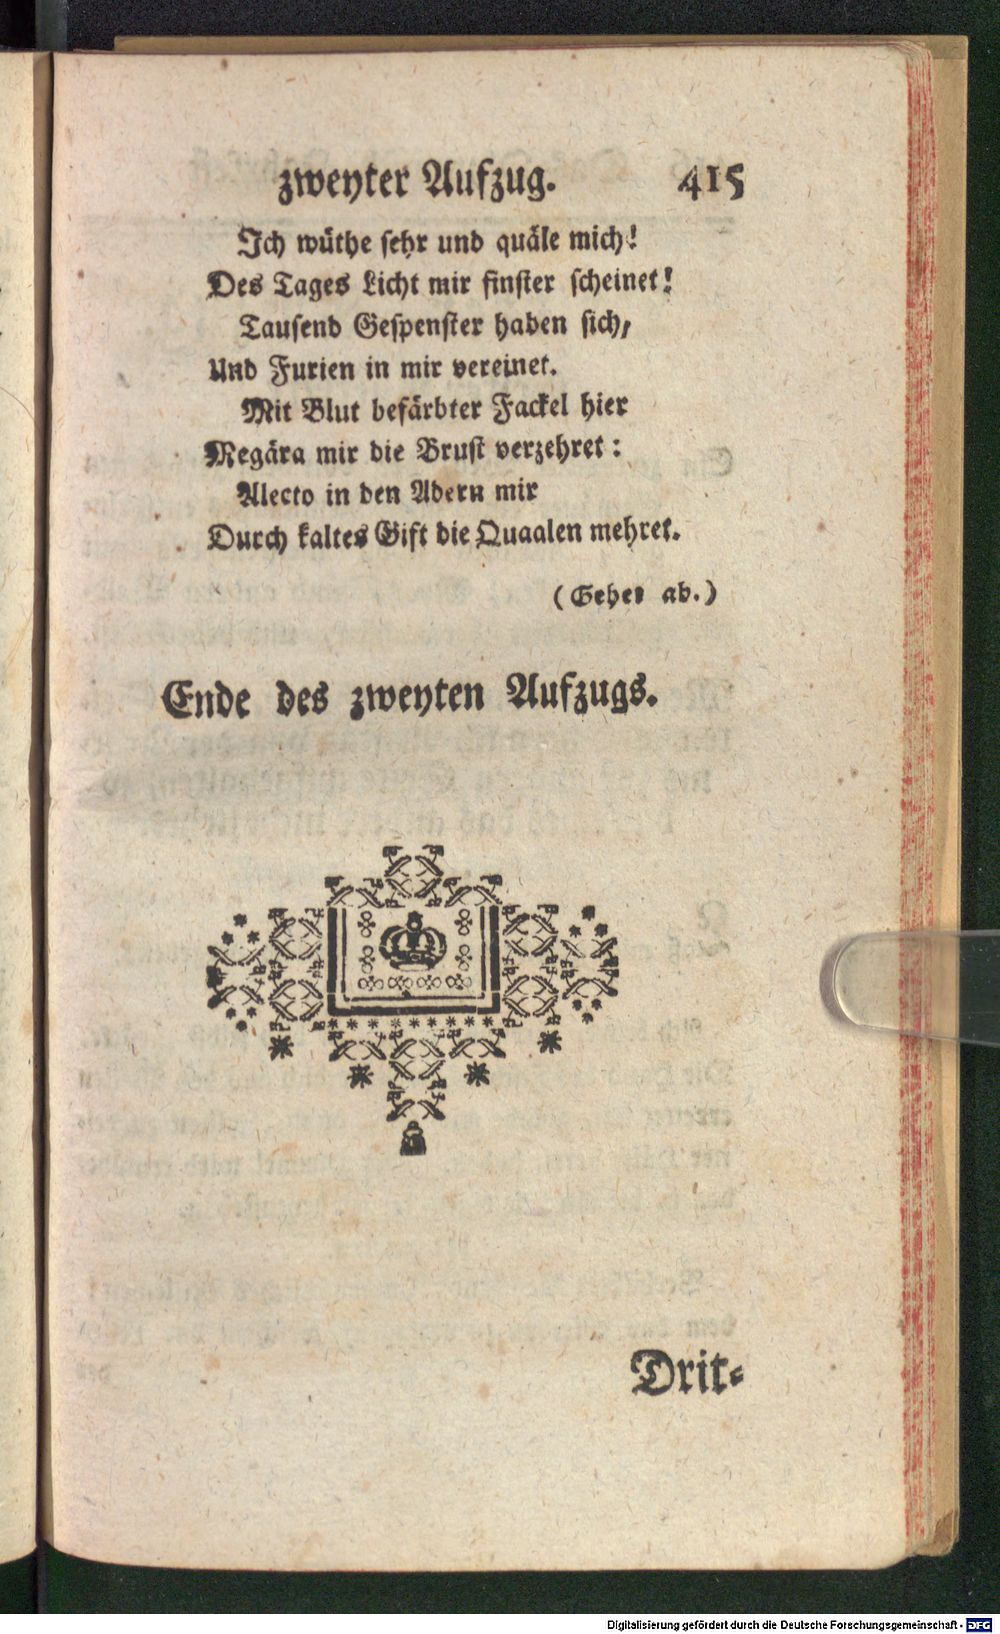 zweyter Aufzug. 415
Ich wüthe sehr und quäle mich!
Des Tages Licht mir finster scheinet!
Tausend Gespenster haben sich,
Und Furien in mir vereinet.
Mit Blut befärbter Fackel hier
Megära mir die Brust verzehret:
Alecto in den Adern mir
Durch kaltes Gift die Quaalen mehret.
(Gehet ab.)
Ende des zweyten Aufzugs.
Drit-
Digitalisierung gefördert durch die Deutsche Forschungsgemeinschaft - DFG